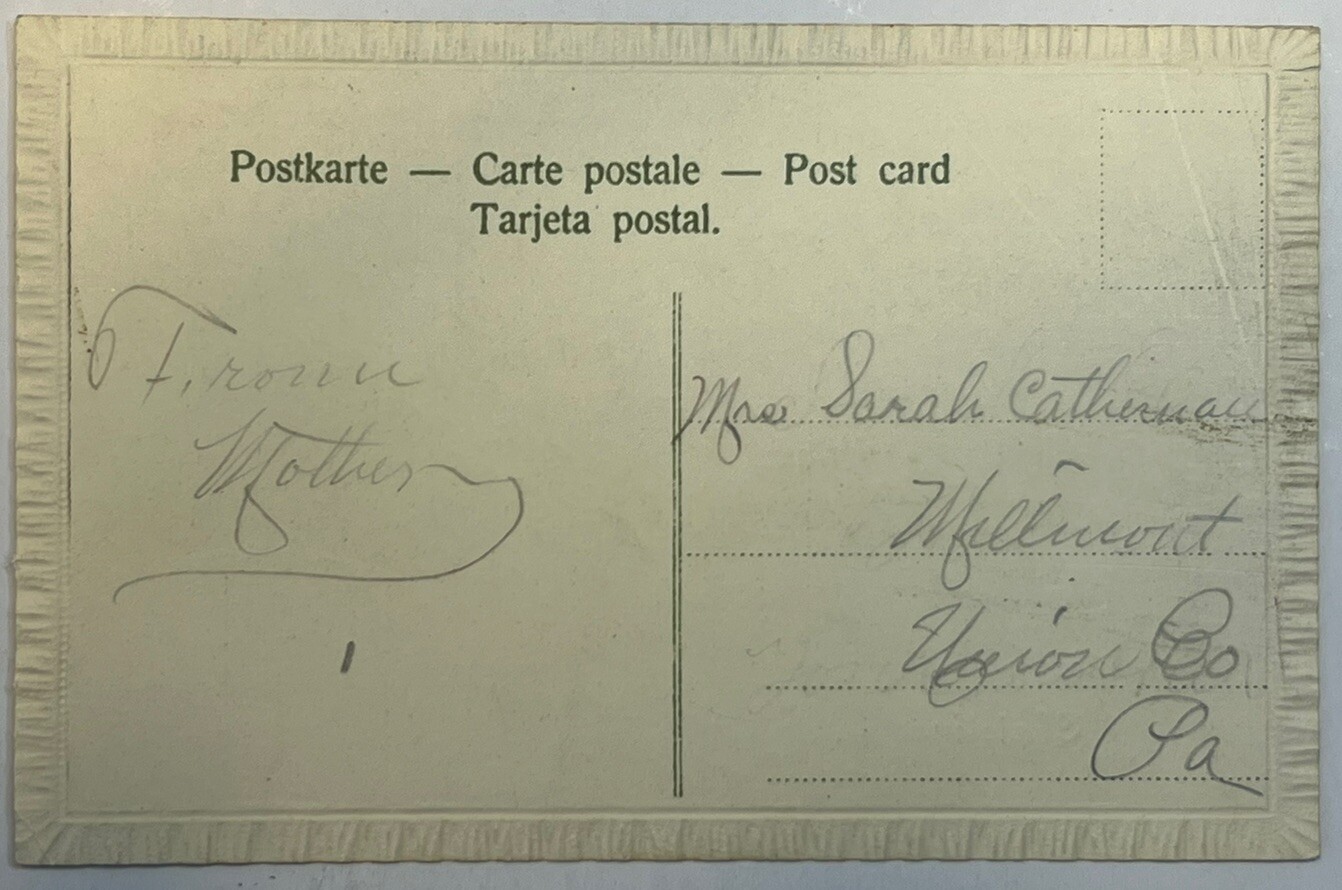 Postkarte — Carte postale — Post card
Tarjeta postal.
From
Mother
Mrs Sarah Catherman
Millmont
Union Co
Pa